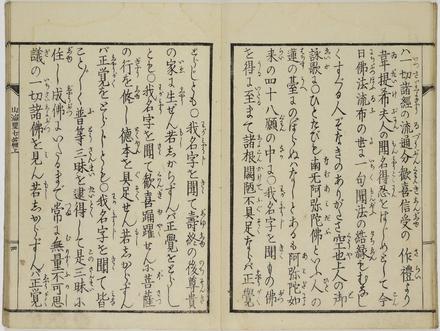 ハ一切諸經の流通に歡喜信受の作禮より
韋提希夫人の聞名得忍をはじめとして今
日佛法流布の世まで一句聞法の結縁をむなし
くすべる人ぞなきのありがたさ空也上人の御
詠歌に〇ひとたびも南无阿弥陀佛といふ人の
蓮の臺にのぼらぬハなしとある阿弥陀如
来の四十八願の中に〇我名字を聞て佛
を得に至まて諸根闕陋不具足ならバ正覺
をとらじとも〇我名字を聞て壽終の後尊貴
の家に生ぜん若しからずんバ正覺をとらじ
とも〇我名字を聞て歡喜踊躍せんに菩薩
の行を修し德本を具足せん若しからずん
バ正覺をとらじとも〇我名字を聞て皆
ことごとく普等三昧を逮得して是三昧に
住し成佛にいたるまで常に無量不可思
議の一切諸佛を見ん若しからずんバ正覺